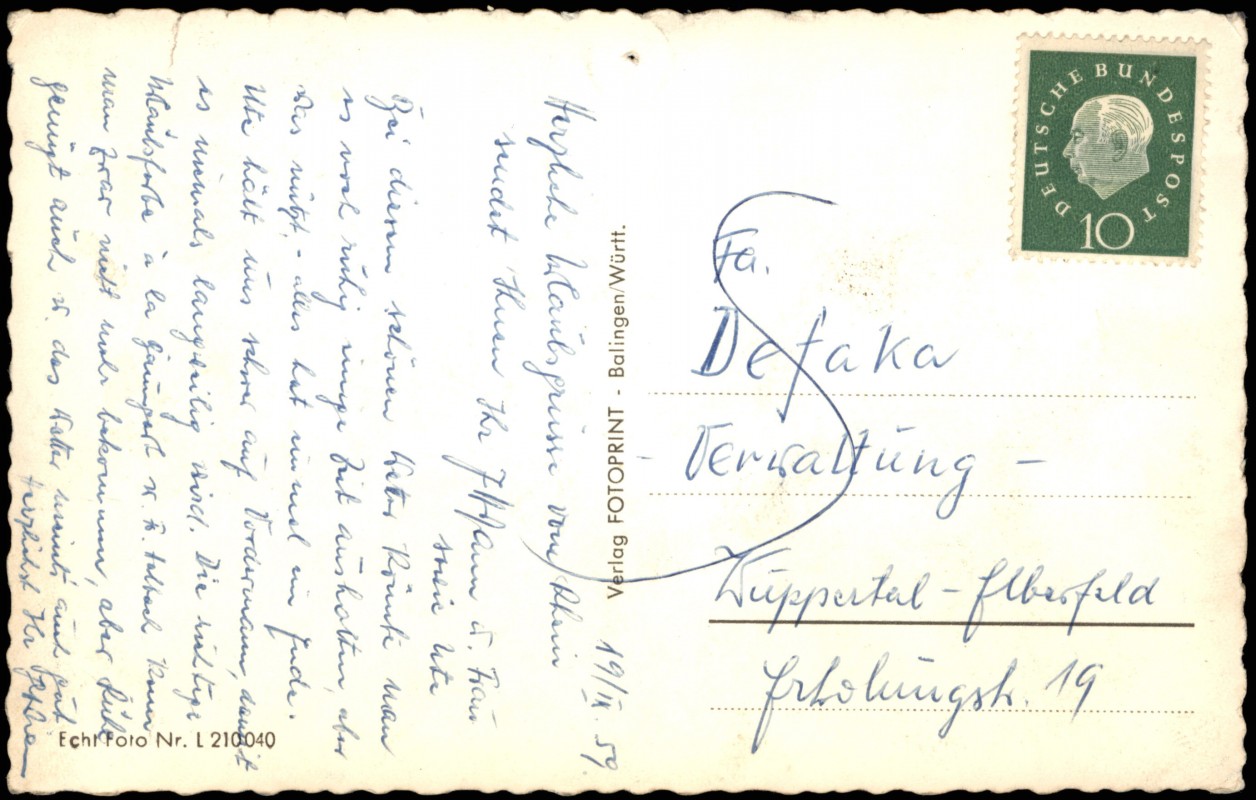 19/IX. 59
Herzliche Urlaubsgrüsse vom Rhein
sendet Ihnen Ihr u. Frau
sowie Ute
Bei diesem schönen Wetter könnte man
es wol ruhig einige Zeit aushalten, aber
was nützt, - alles hat einmal ein Ende.
Ute hält uns schwer auf Vordermann, damit
es niemals langweilig wird. Die richtige
Urlaubsfarbe à la u. Fr. kann
man zwar nicht mehr bekommen, aber Ruhe
genügt auch u. das Wetter meint's auch gut
herzlichst Ihr
Verlag FOTOPRINT - Balingen/Württ.
Echt Foto Nr. L 210 040
DEUTSCHE BUNDESPOST
10
Fa.
Defaka
Verwaltung -
Wuppertal - Elberfeld
Erholungstr. 19